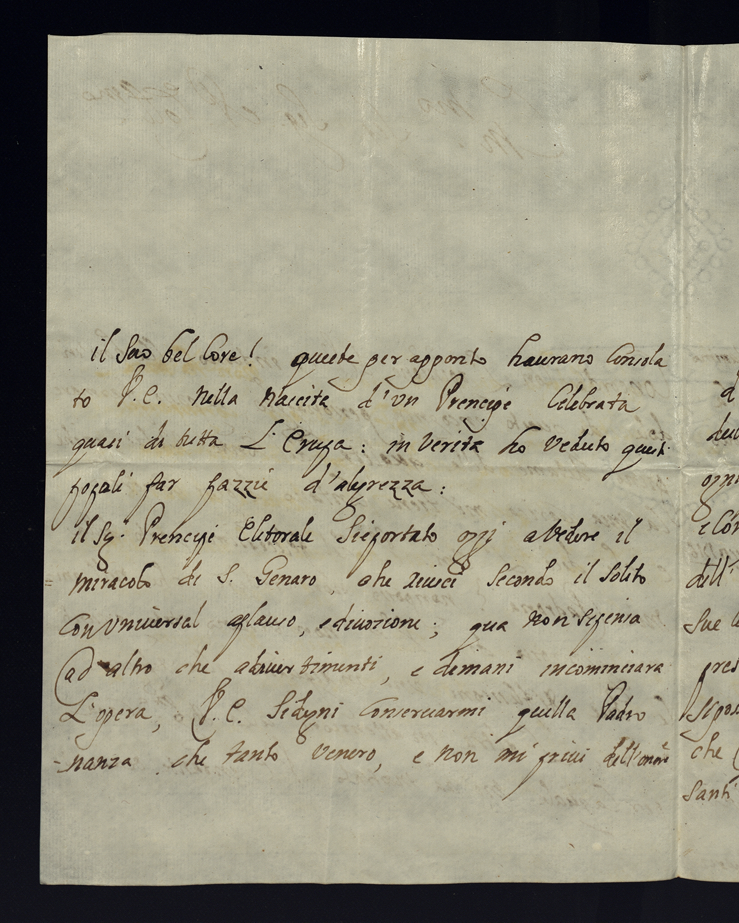 il suo bel Core! queste per apponto haurano Consola
to V.E. nella nascita d'un Prencipe Celebrata
quasi da tutta L'Europa: in verità ho veduto questi
popoli far pazzie d'alegrezza:
il Sig. Prencipe Elitorale Sieportato oggi a Vedere il
miracolo di S. Genaro, che riuscì secondo il solito
Con universal aplauso, e divozione; qua non sipensa
ad altro che a divertimenti, e dimani incominciara
L'opera, V.E. Sidegni Conservarmi quella Padro
nanza che tanto venero, e non mi privi dell'onore
d'
ogni
dell'
che
Santi